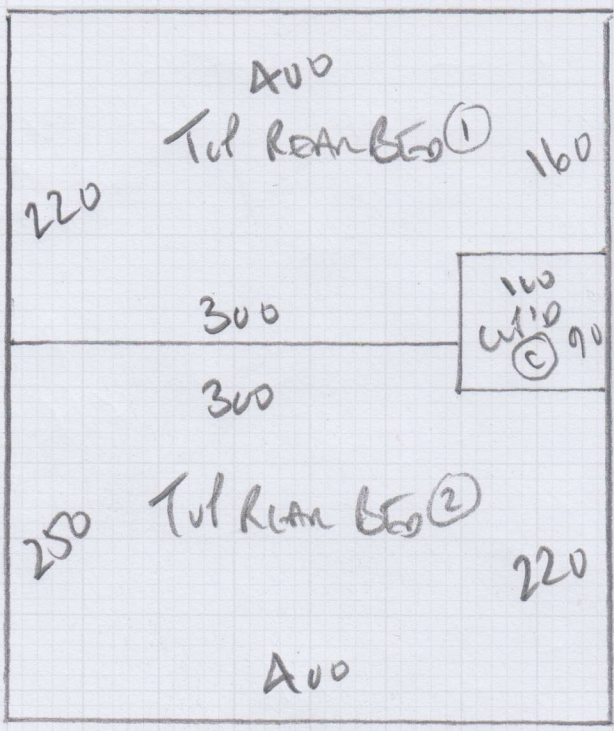 400
TOP REAR BED ①
160
220
300
100
CUP'D
Ⓒ 90
300
TOP REAR BED ②
250
220
400